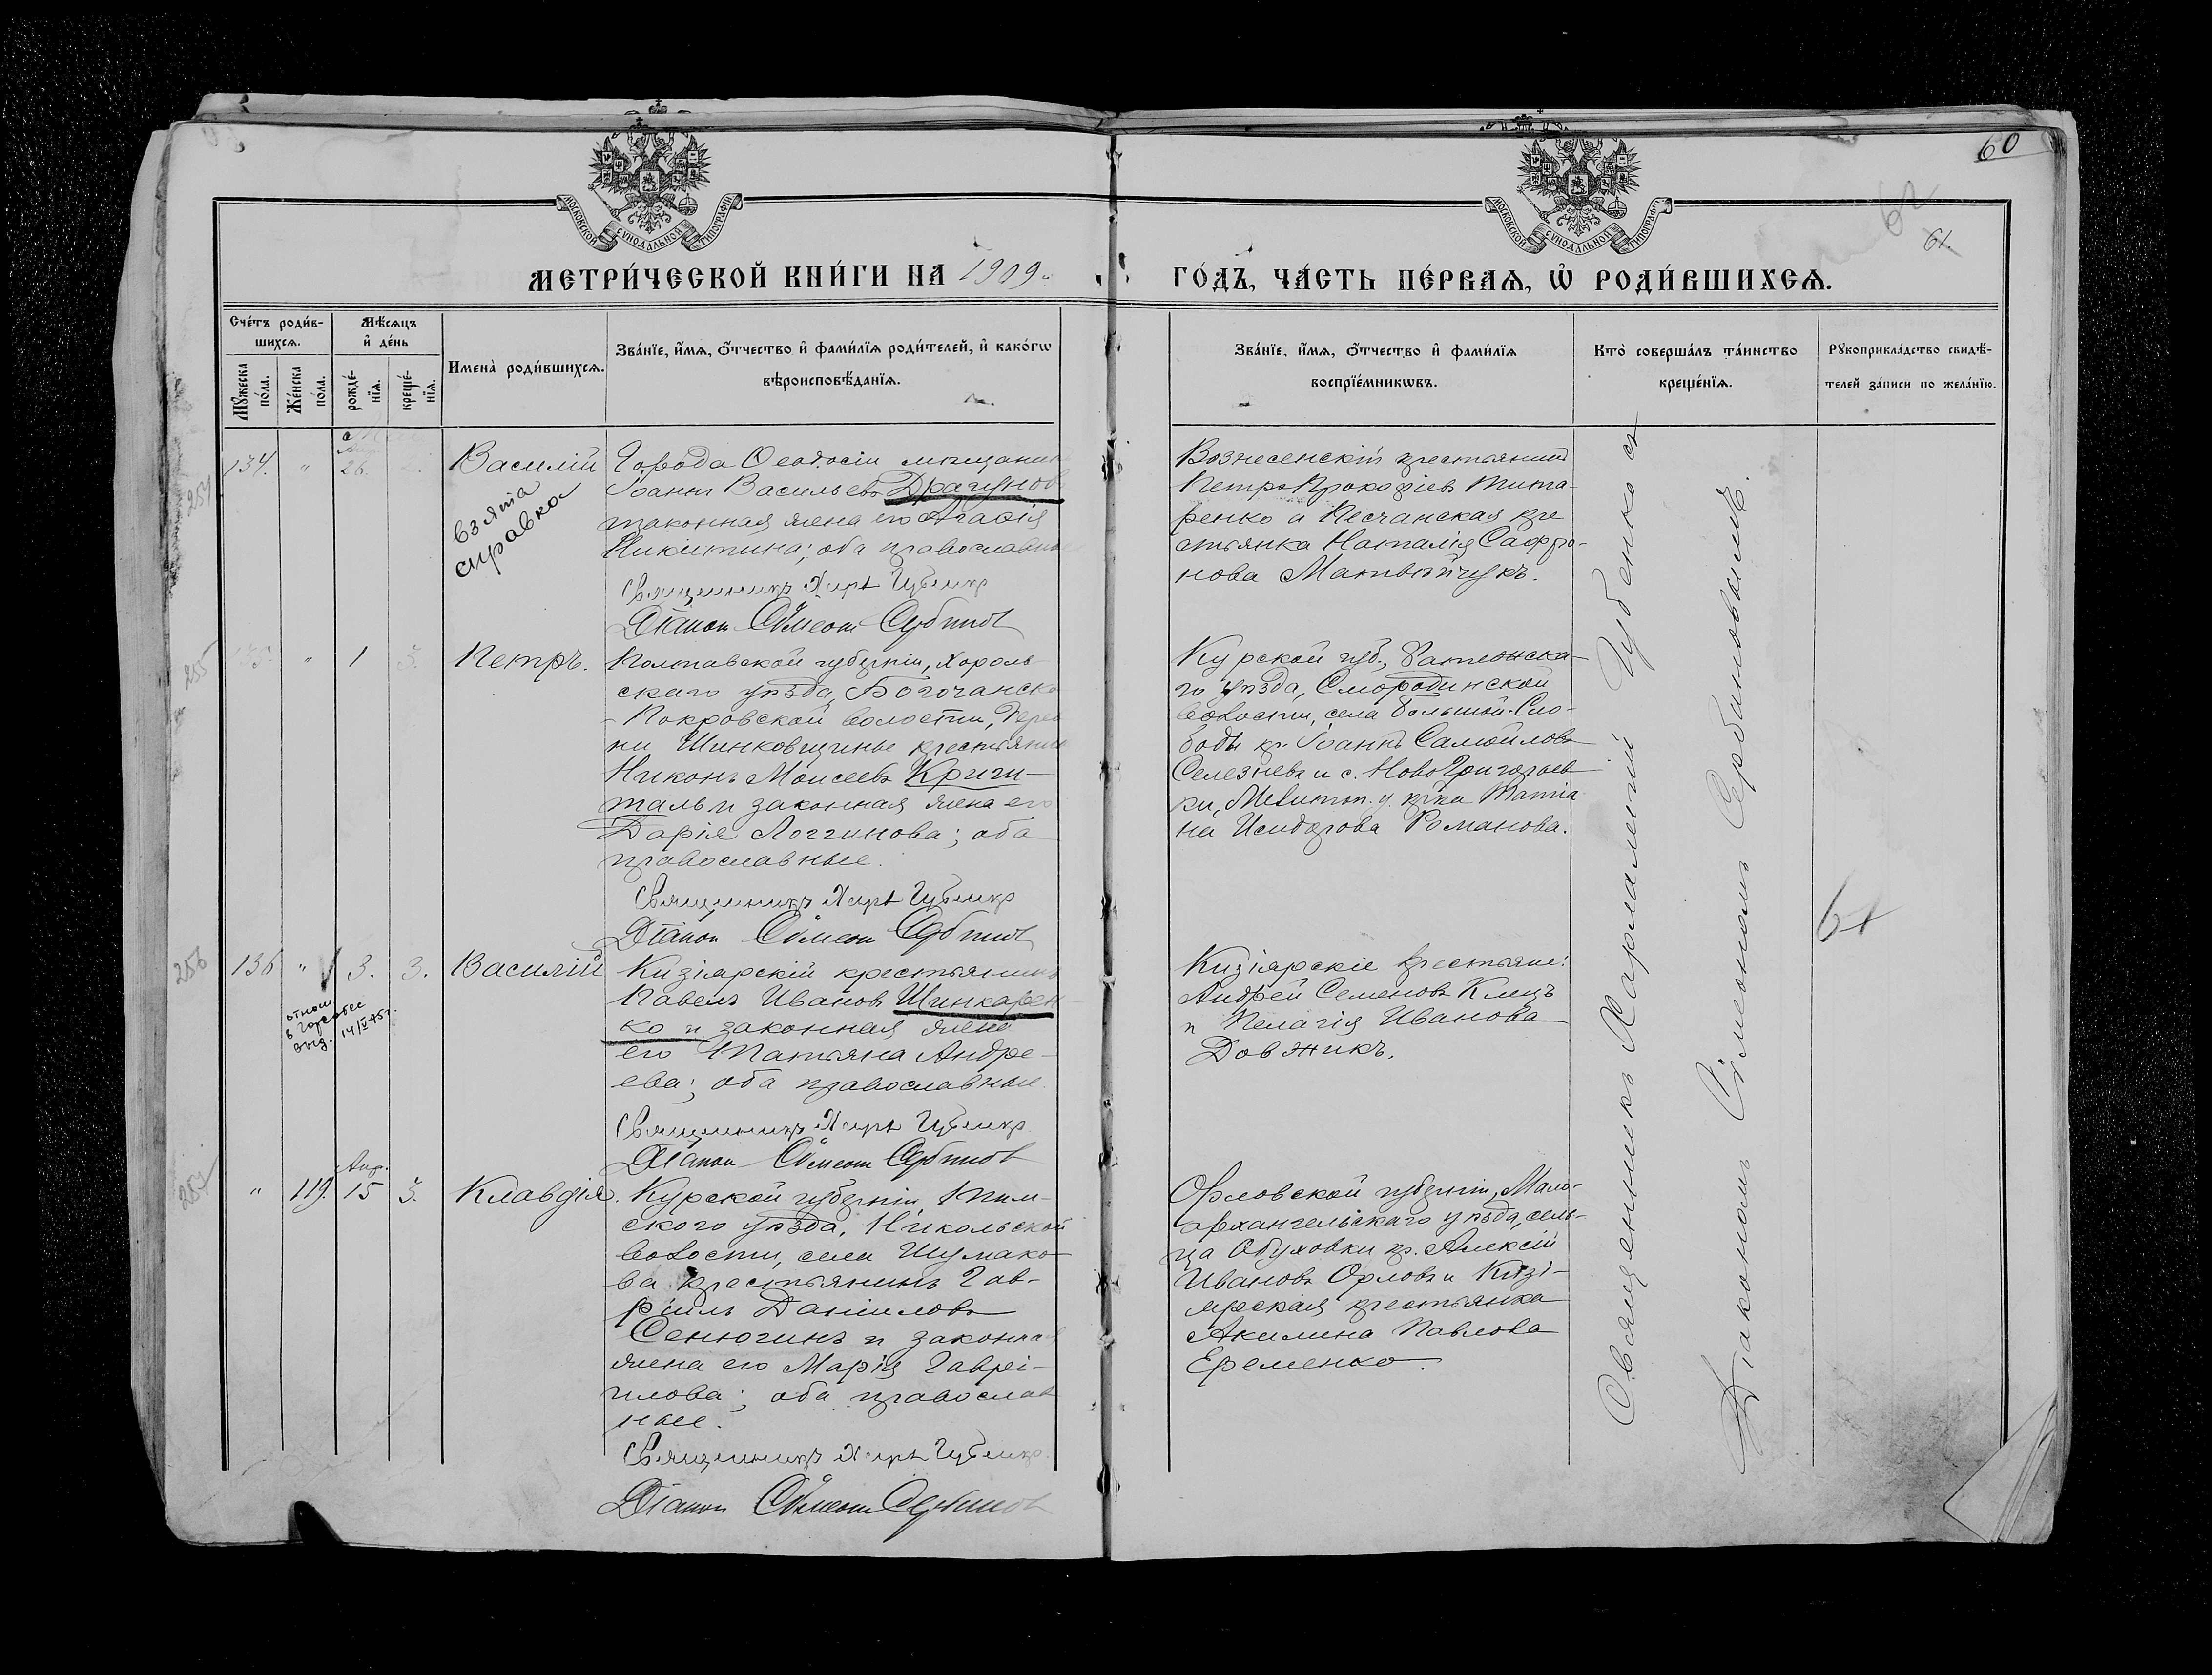 60
62
61.
МОСКОВСКОЙ СѴНОДАЛЬНОЙ ТИПОГРАФІИ
МОСКОВСКОЙ СѴНОДАЛЬНОЙ ТИПОГРАФІИ
МЕТРИ́ЧЕСКОЙ КНИ́ГИ НА 1909
ГО́ДЪ, ЧА́СТЬ ПЕ́РВАѦ, Ѡ҆ РОДИ́ВШИХСѦ.
Сче́тъ роди́в-
шихсѧ.
Мѣ́сѧцъ
и҆ де́нь
Мꙋ́жеска по́ла.
Же́нска по́ла.
рожде́-
нїѧ.
креще́-
нїѧ.
Имена̀ роди́вшихсѧ.
Зва́нїе, и҆́мѧ, ѻ҆́тчество и҆ фами́лїѧ роди́телей, и҆ како́гѡ
вѣроисповѣ́данїѧ.
Зва́нїе, и҆́мѧ, ѻ҆́тчество и҆ фами́лїѧ
воспрїе́мникѡвъ.
Кто̀ соверша́лъ та́инство
креще́нїѧ.
Рꙋкоприкла́дство свидѣ́-
телей за́писи по жела́нїю.
254
134. " 26.
Василій
взята
справка
Города Ѳеодосіи мѣщанин
Іоаннъ Васильевъ Драгунов
законная жена его Агаѳія
Никитина; оба православные
Священникъ Харл Губенко
Діакон Сѵмеон Сербинов
Вознесенскій крестьянинъ
Петръ Прокофіевъ Тита-
ренко и Песчанская кре
стьянка Наталія Сафро-
нова Матвѣйчукъ.
255
" 1 3.
Петръ.
Полтавской губерніи, Хороль
скаго уѣзда, Богочанско
- Покровской волости, Дерев
ни Шинковщинье крестьянин
Никонъ Моисеевъ Криги-
таль и законная жена его
Дарія Логгинова; оба
православные.
Священникъ Харл Губенко
Діакон Сѵмеон Сербинов
Курской губ., Фатежска-
го уѣзда, Смородинской
волости, села Большой-Сло-
боды кр. Іоаннъ Самойловъ
Селезневъ и с. Ново Григорьев
ки, Мелитоп. у. кр-ка Татіа
на Исидорова Романова.
256
136 " 3. 3.
Василій
отнош.
в Горсобес
выд. 14/V-45г.
Кизіярскій крестьянинъ
Павелъ Ивановъ Шинкарен
ко и законная жена
его Татьяна Андре-
ева; оба православные.
Священникъ Харл Губенко
Діакон Сѵмеон Сербинов
Кизіярскіе крестьяне:
Андрей Семеновъ Клецъ
и Пелагія Иванова
Довжикъ.
257
Апр.
" 119. 15 3.
Клавдія.
Курской губерніи, Тим-
ского уѣзда, Никольской
волости, села Шумако-
ва крестьянинъ Гав-
ріилъ Даніиловъ
Сенюгинъ и законная
жена его Марія Гаврі-
илова; оба православ
ные.
Священникъ Харл Губенко
Діакон Сѵмеон Сербинов
Орловской губерніи, Мало-
архангельскаго уѣзда, сель-
ца Обуховки кр. Алексій
Ивановъ Орловъ и Кизі-
ярская крестьянка
Акилина Павлова
Еременко.
Священникъ Харлампій Губенко съ
Діакономъ Сѵмеономъ Сербиновымъ.
61